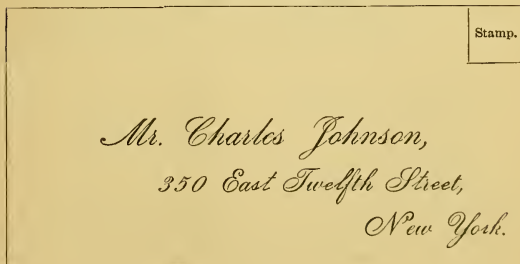 Stamp.
Mr. Charles Johnson,
350 East Twelfth Street,
New York.